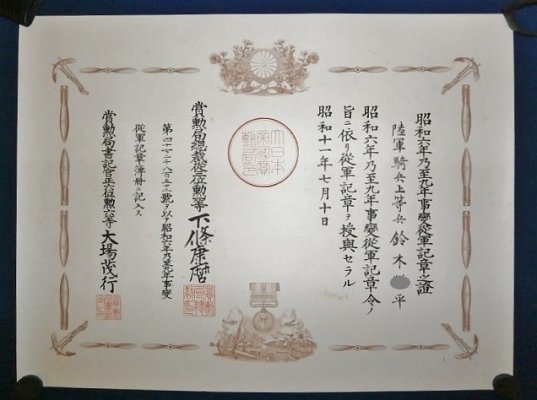 昭和六年乃至九年事變從軍記章之證
陸軍騎兵上等兵 鈴木 平
昭和六年乃至九年事變從軍記章令ノ
旨ニ依リ從軍記章ヲ授與セラル
昭和十一年七月十日
大日本
賞勲局總裁從位勲等下條康麿
號ヲ以テ昭和六年乃至九年事變
從軍記章簿册ニ記入ス
賞勲局書記官正六位勲六等大場茂行